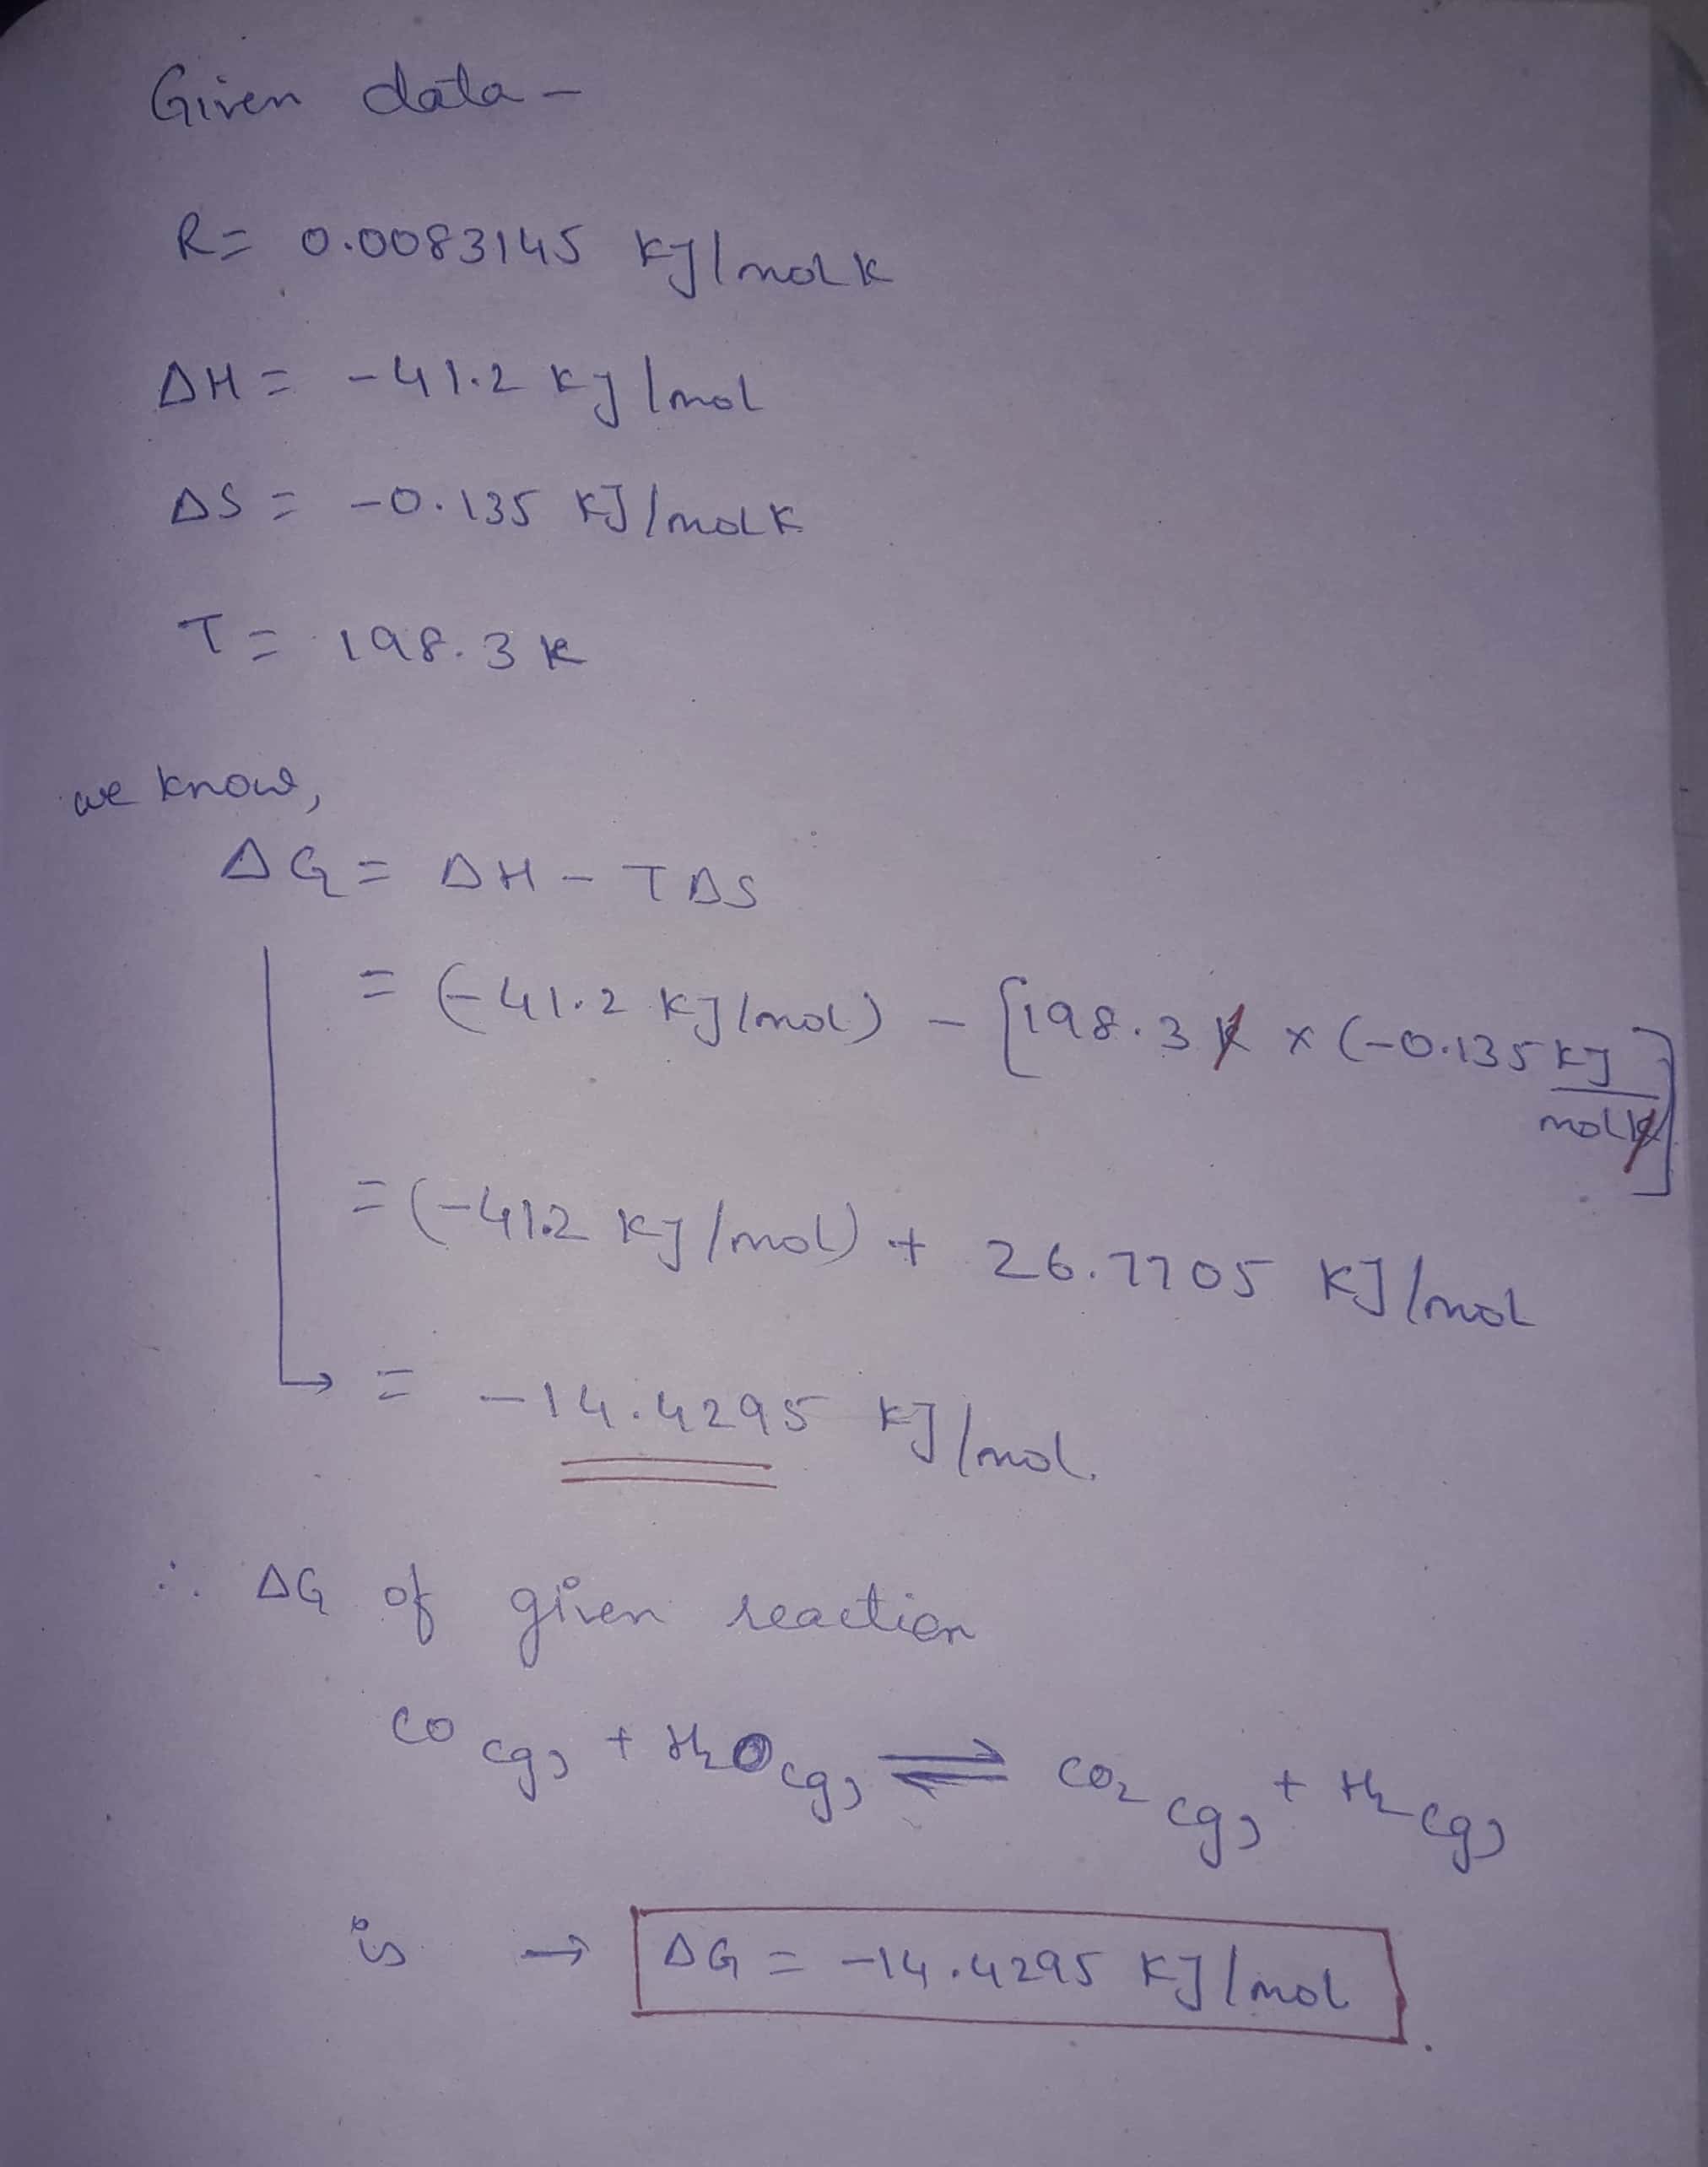 Given data -
R = 0.0083145 KJ/molK
ΔH = -41.2 KJ/mol
ΔS = -0.135 KJ/molK
T = 198.3 K
we know,
ΔG = ΔH - TΔS
= (-41.2 KJ/mol) - [198.3 K × (-0.135 KJ/molK]
= (-41.2 KJ/mol) + 26.7705 KJ/mol
= -14.4295 KJ/mol.
∴ ΔG of given reaction
CO(g) + H2O(g) ⇌ CO2(g) + H2(g)
is → ΔG = -14.4295 KJ/mol.